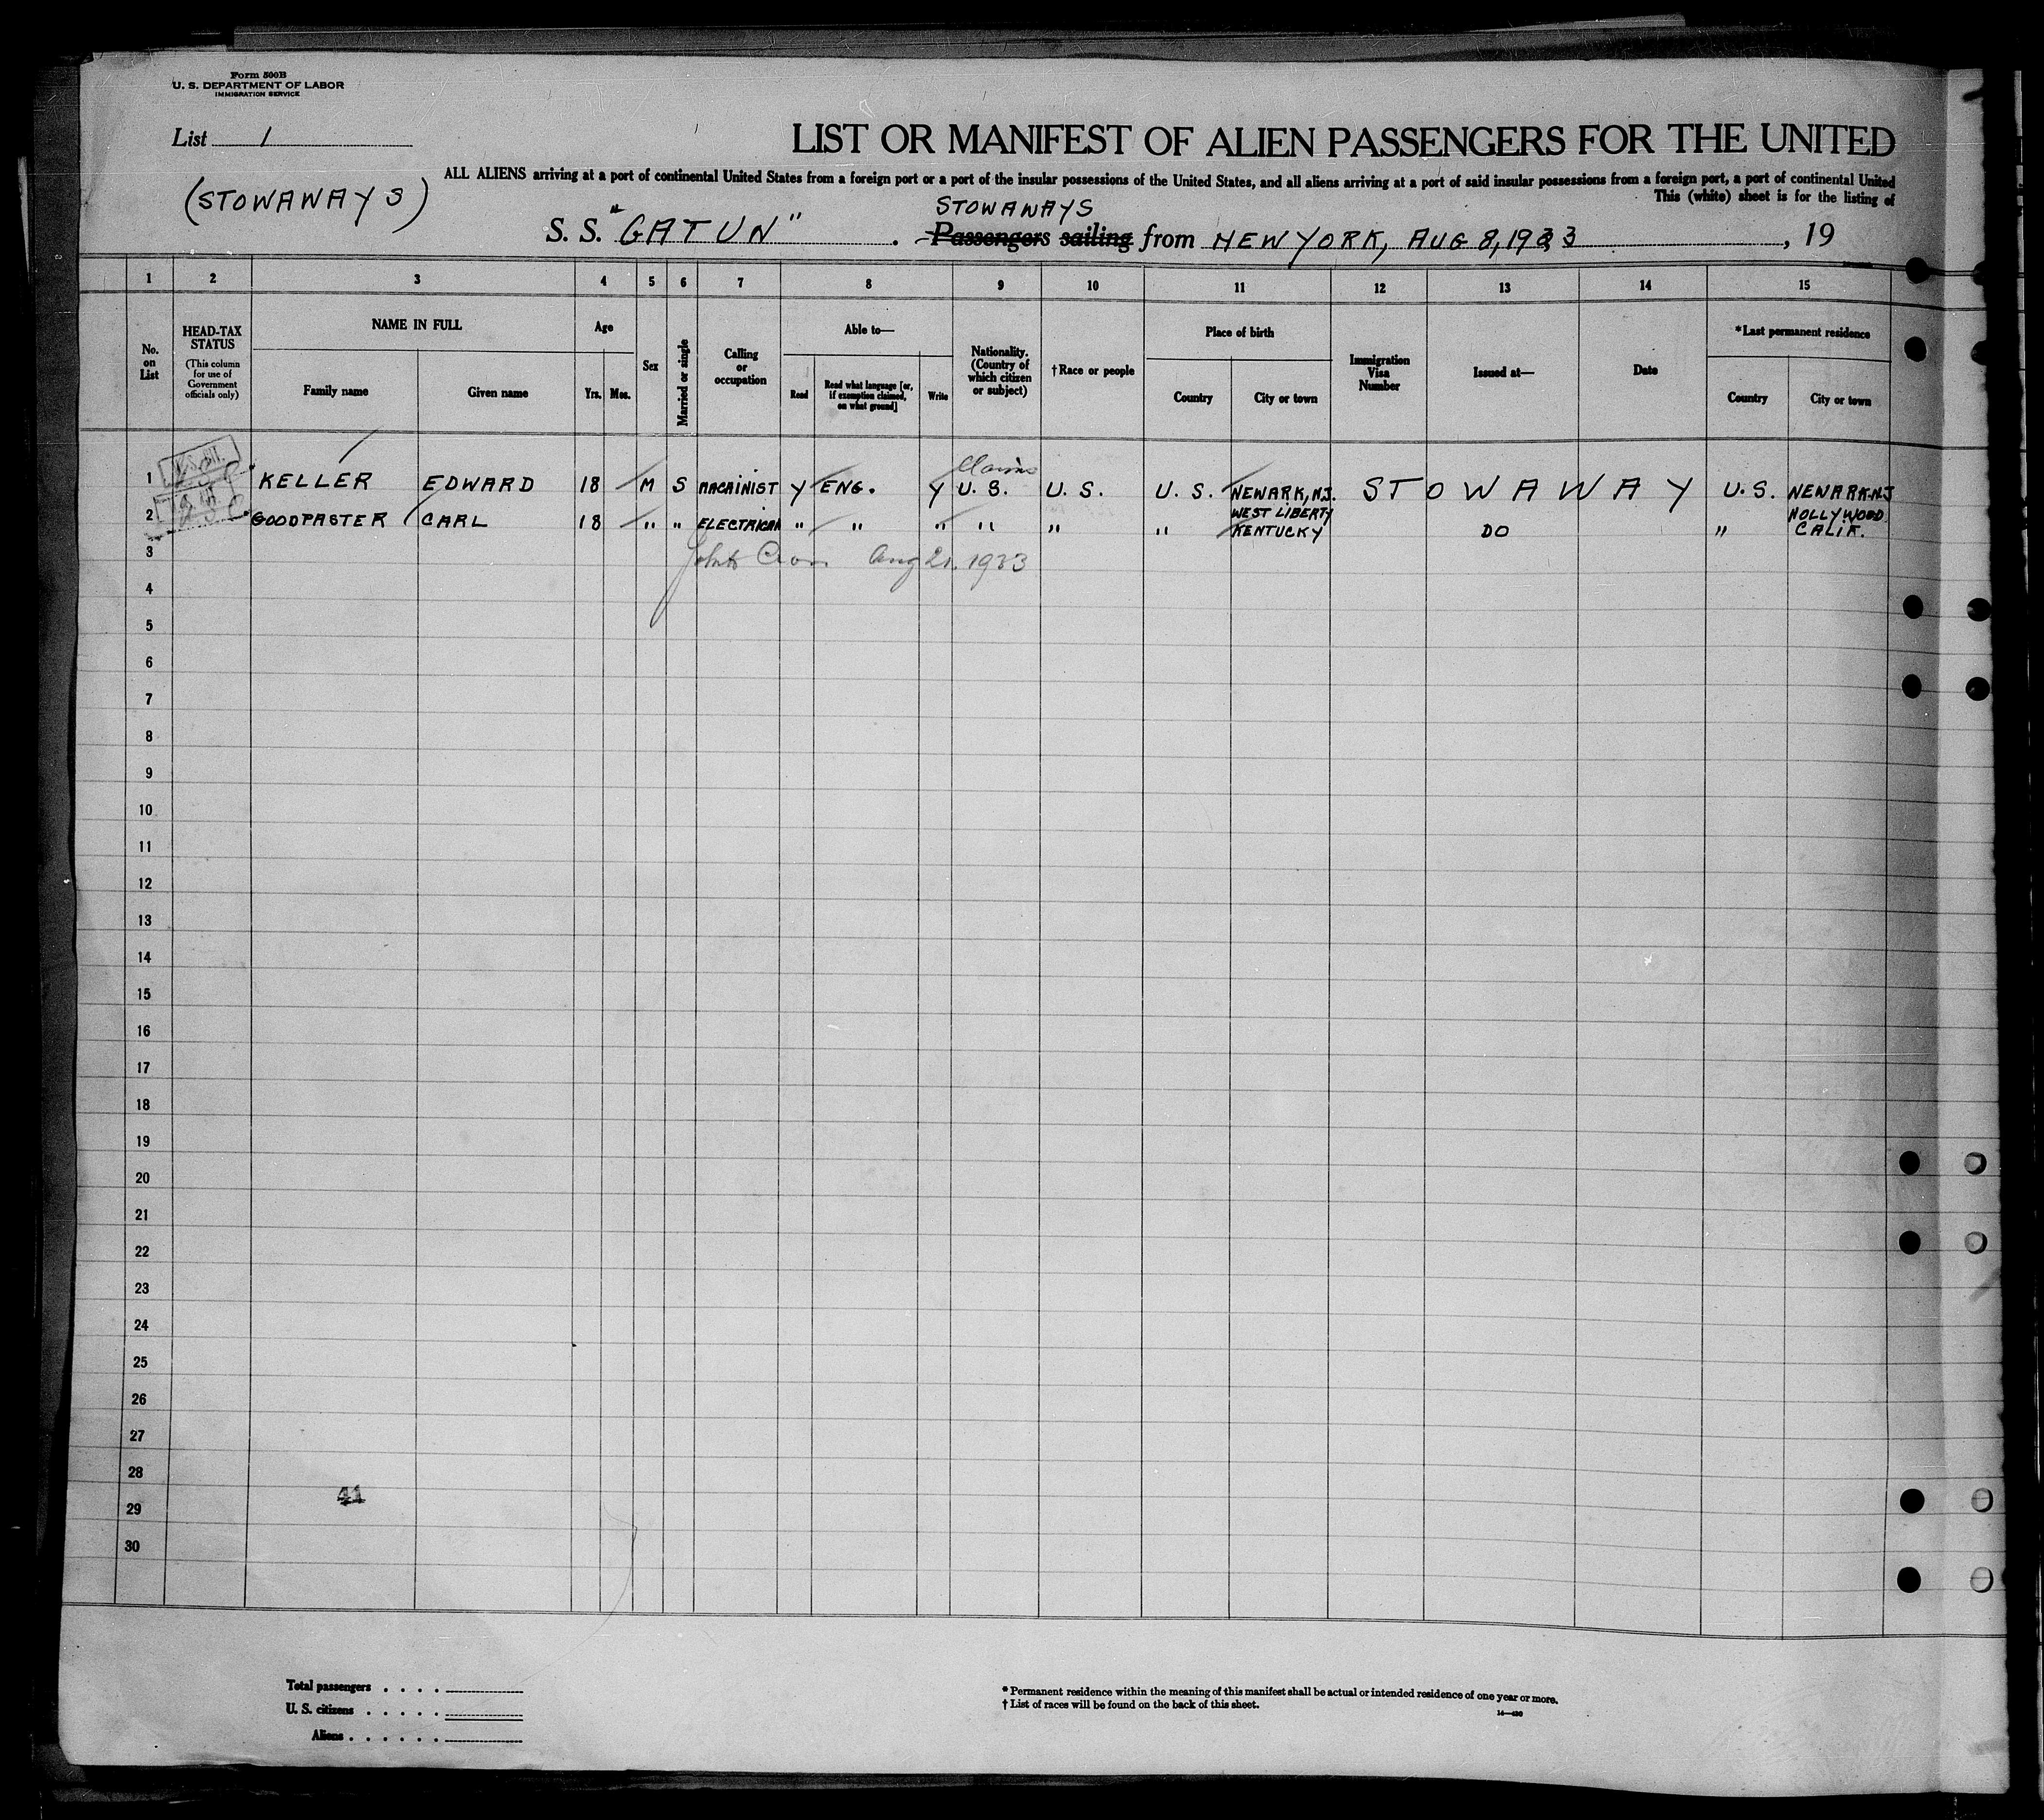 Form 500B
U. S. DEPARTMENT OF LABOR
IMMIGRATION SERVICE
List 1
LIST OR MANIFEST OF ALIEN PASSENGERS FOR THE UNITED
ALL ALIENS arriving at a port of continental United States from a foreign port or a port of the insular possessions of the United States, and all aliens arriving at a port of said insular possessions from a foreign port, a port of continental United
This (white) sheet is for the listing of
(STOWAWAYS)
STOWAWAYS
S. S. "GATUN" . Passengers sailing from NEW YORK, AUG 8, 1933 , 19
1 2 3 4 5 6 7 8 9 10 11 12 13 14 15
No. on List
HEAD-TAX STATUS
(This column for use of Government officials only)
NAME IN FULL
Family name Given name
Age
Yrs. Mos.
Sex
Married or single
Calling or occupation
Able to—
Read
Read what language [or, if exemption claimed, on what ground]
Write
Nationality. (Country of which citizen or subject)
†Race or people
Place of birth
Country City or town
Immigration Visa Number
Issued at—
Date
*Last permanent residence
Country City or town
Claims
1 KELLER EDWARD 18 M S MACAINIST Y ENG. Y U. S. U. S. U. S. NEWARK, N.J. STOWAWAY U. S. NEWARK N.J
2 GOODPASTER CARL 18 " " ELECTRICAN " " " " " " WEST LIBERTY KENTUCKY DO " HOLLYWOOD CALIF.
3 Aug 21. 1933
4
5
6
7
8
9
10
11
12
13
14
15
16
17
18
19
20
21
22
23
24
25
26
27
28
41
29
30
Total passengers . . . .
U. S. citizens . . . . .
Aliens . . . . . .
* Permanent residence within the meaning of this manifest shall be actual or intended residence of one year or more.
† List of races will be found on the back of this sheet.
14—430